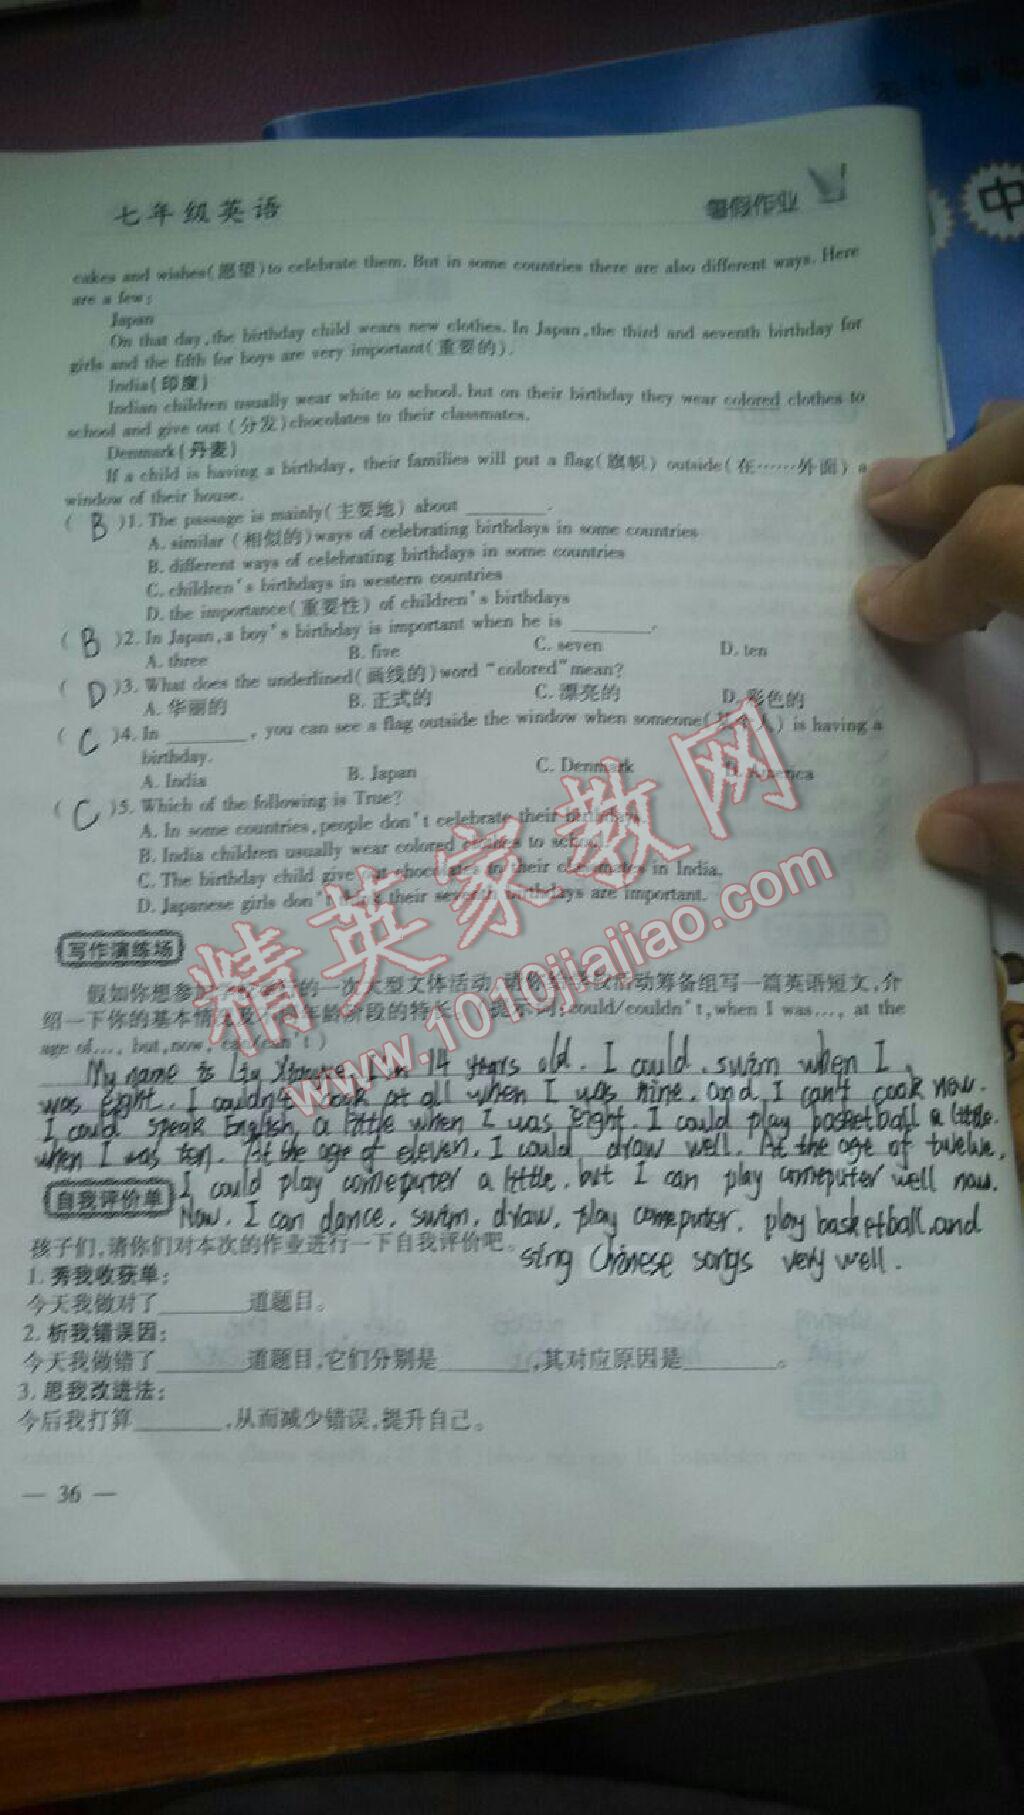 七年级英语
暑假作业
中
cakes and wishes(愿望)to celebrate them. But in some countries there are also different ways. Here
are a few:
Japan
On that day, the birthday child wears new clothes. In Japan, the third and seventh birthday for
girls and the fifth for boys are very important(重要的).
India(印度)
Indian children usually wear white to school, but on their birthday they wear colored clothes to
school and give out (分发)chocolates to their classmates.
Denmark(丹麦)
If a child is having a birthday, their families will put a flag(旗帜) outside(在……外面) a
window of their house.
( B )1. The passage is mainly(主要地) about ________.
A. similar (相似的)ways of celebrating birthdays in some countries
B. different ways of celebrating birthdays in some countries
C. children's birthdays in western countries
D. the importance(重要性) of children's birthdays
( B )2. In Japan, a boy's birthday is important when he is ________.
A. three B. five C. seven D. ten
( D )3. What does the underlined(画线的)word "colored" mean?
A. 华丽的 B. 正式的 C. 漂亮的 D. 彩色的
( C )4. In ________, you can see a flag outside the window when someone(某个人) is having a
birthday.
A. India B. Japan C. Denmark D. America
( C )5. Which of the following is True?
A. In some countries, people don't celebrate their birthdays.
B. India children usually wear colored clothes to school.
C. The birthday child give out chocolates to their classmates in India.
D. Japanese girls don't their seventh birthdays are important.
写作演练场
假如你想参加学校的一次大型文体活动,请你给学校活动筹备组写一篇英语短文,介
绍一下你的基本情况及不同年龄阶段的特长。(提示词:could/couldn't, when I was..., at the
age of..., but, now, can/can't)
My name is I'm 14 years old. I could swim when I
was eight. I couldn't cook at all when I was nine, and I can't cook now.
I could speak English a little when I was eight. I could play basketball a little
when I was ten. At the age of eleven, I could draw well. At the age of twelve,
I could play comeputer a little, but I can play comeputer well now.
Now, I can dance, swim, draw, play comeputer, play basketball, and
sing Chinese songs very well.
自我评价单
孩子们,请你们对本次的作业进行一下自我评价吧。
1. 秀我收获单:
今天我做对了________道题目。
2. 析我错误因:
今天我做错了________道题目,它们分别是________,其对应原因是________。
3. 思我改进法:
今后我打算________,从而减少错误,提升自己。
— 36 —
精英家教网
www.1010jiajiao.com